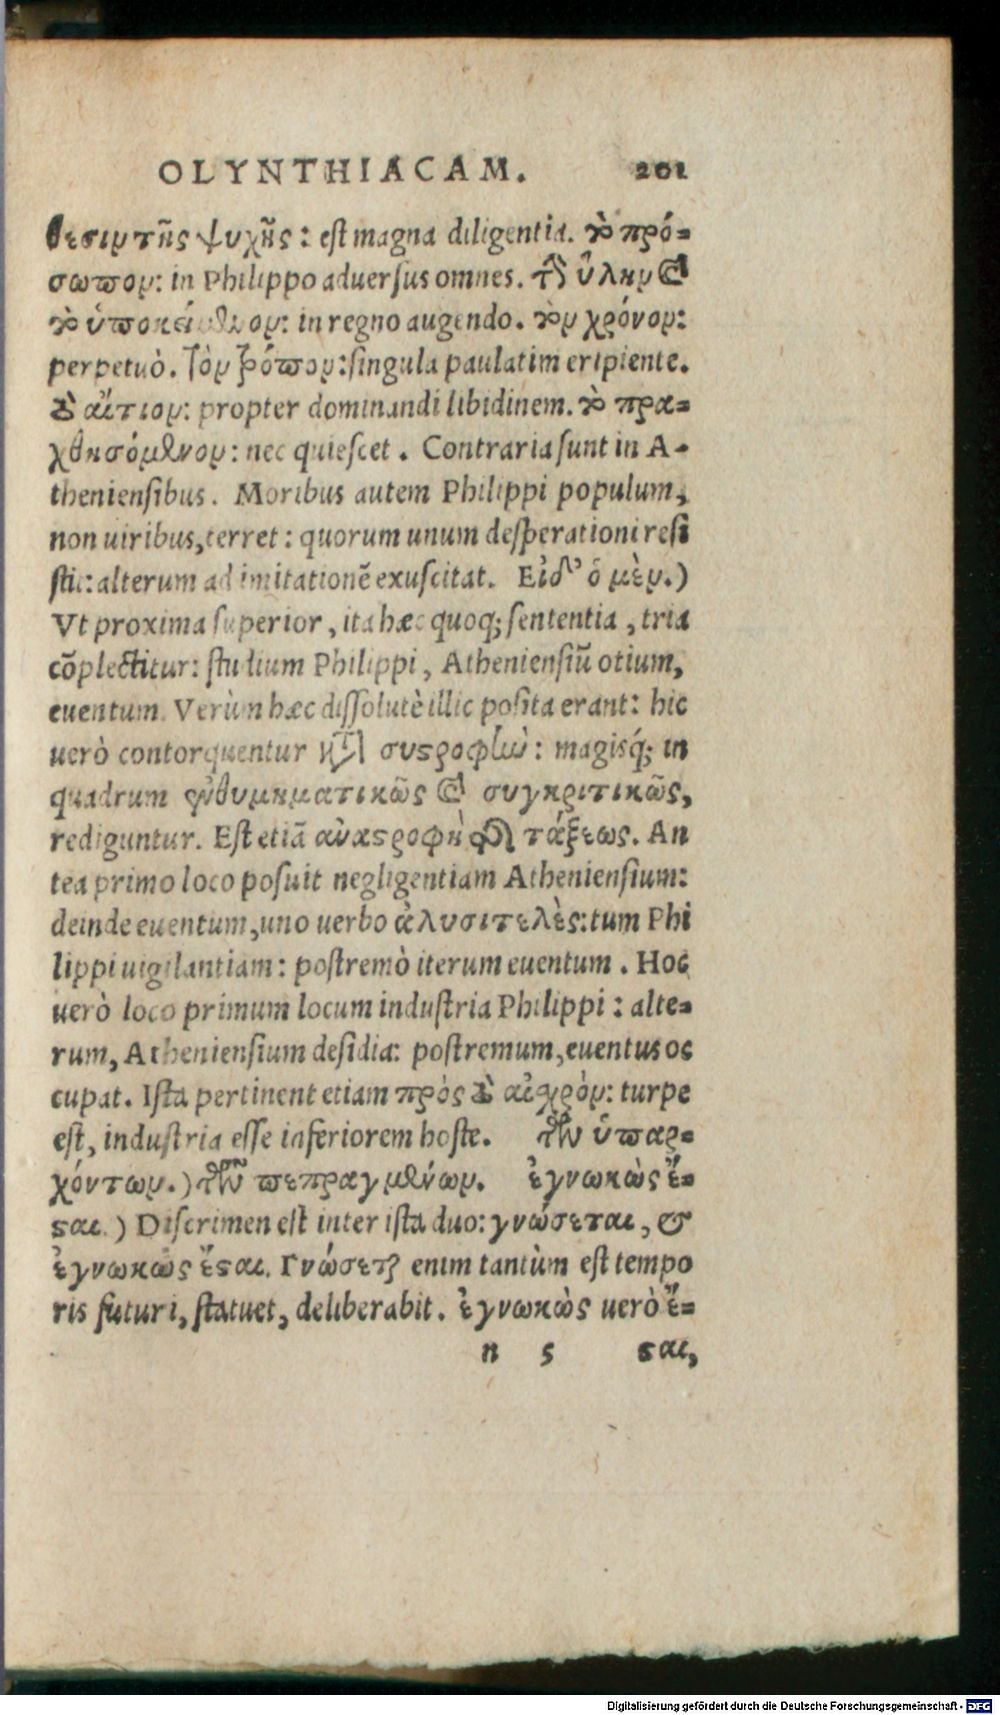 OLYNTHIACAM. 201
θεσιν τῆς ψυχῆς: est magna diligentia. τὸ πρό-
σωπον: in Philippo aduersus omnes. τὴν ὕλην καὶ
τὸ ὑποκείμενον: in regno augendo. τὸν χρόνον:
perpetuò. τὸν τρόπον: singula paulatim eripiente.
τὸ αἴτιον: propter dominandi libidinem. τὸ πρα-
χθησόμενον: nec quiescet. Contraria sunt in A-
theniensibus. Moribus autem Philippi populum,
non uiribus, terret: quorum unum desperationi resi
stit: alterum ad imitationē exuscitat. Εἰ δ' ὁ μὲν.)
Vt proxima superior, ita hæc quoq; sententia, tria
cōplectitur: studium Philippi, Atheniensiū otium,
euentum. Verùm hæc dissolutè illic posita erant: hic
uerò contorquentur κατὰ συστροφὴν: magisq́; in
quadrum ἐνθυμηματικῶς καὶ συγκριτικῶς,
rediguntur. Est etiā ἀναστροφὴ τῆς τάξεως. An
tea primo loco posuit negligentiam Atheniensium:
deinde euentum, uno uerbo ἀλυσιτελὲς: tum Phi
lippi uigilantiam: postremò iterum euentum. Hoc
uerò loco primum locum industria Philippi: alte-
rum, Atheniensium desidia: postremum, euentus oc
cupat. Ista pertinent etiam πρὸς τὸ αἰσχρὸν: turpe
est, industria esse inferiorem hoste. τῶν ὑπαρ-
χόντων.) τῶν πεπραγμένων. ἐγνωκὼς ἔ-
σται.) Discrimen est inter ista duo: γνώσεται, &
ἐγνωκὼς ἔσται. Γνώσεται enim tantùm est tempo
ris futuri, statuet, deliberabit. ἐγνωκὼς uerò ἔ-
n 5 σται,
Digitalisierung gefördert durch die Deutsche Forschungsgemeinschaft - DFG